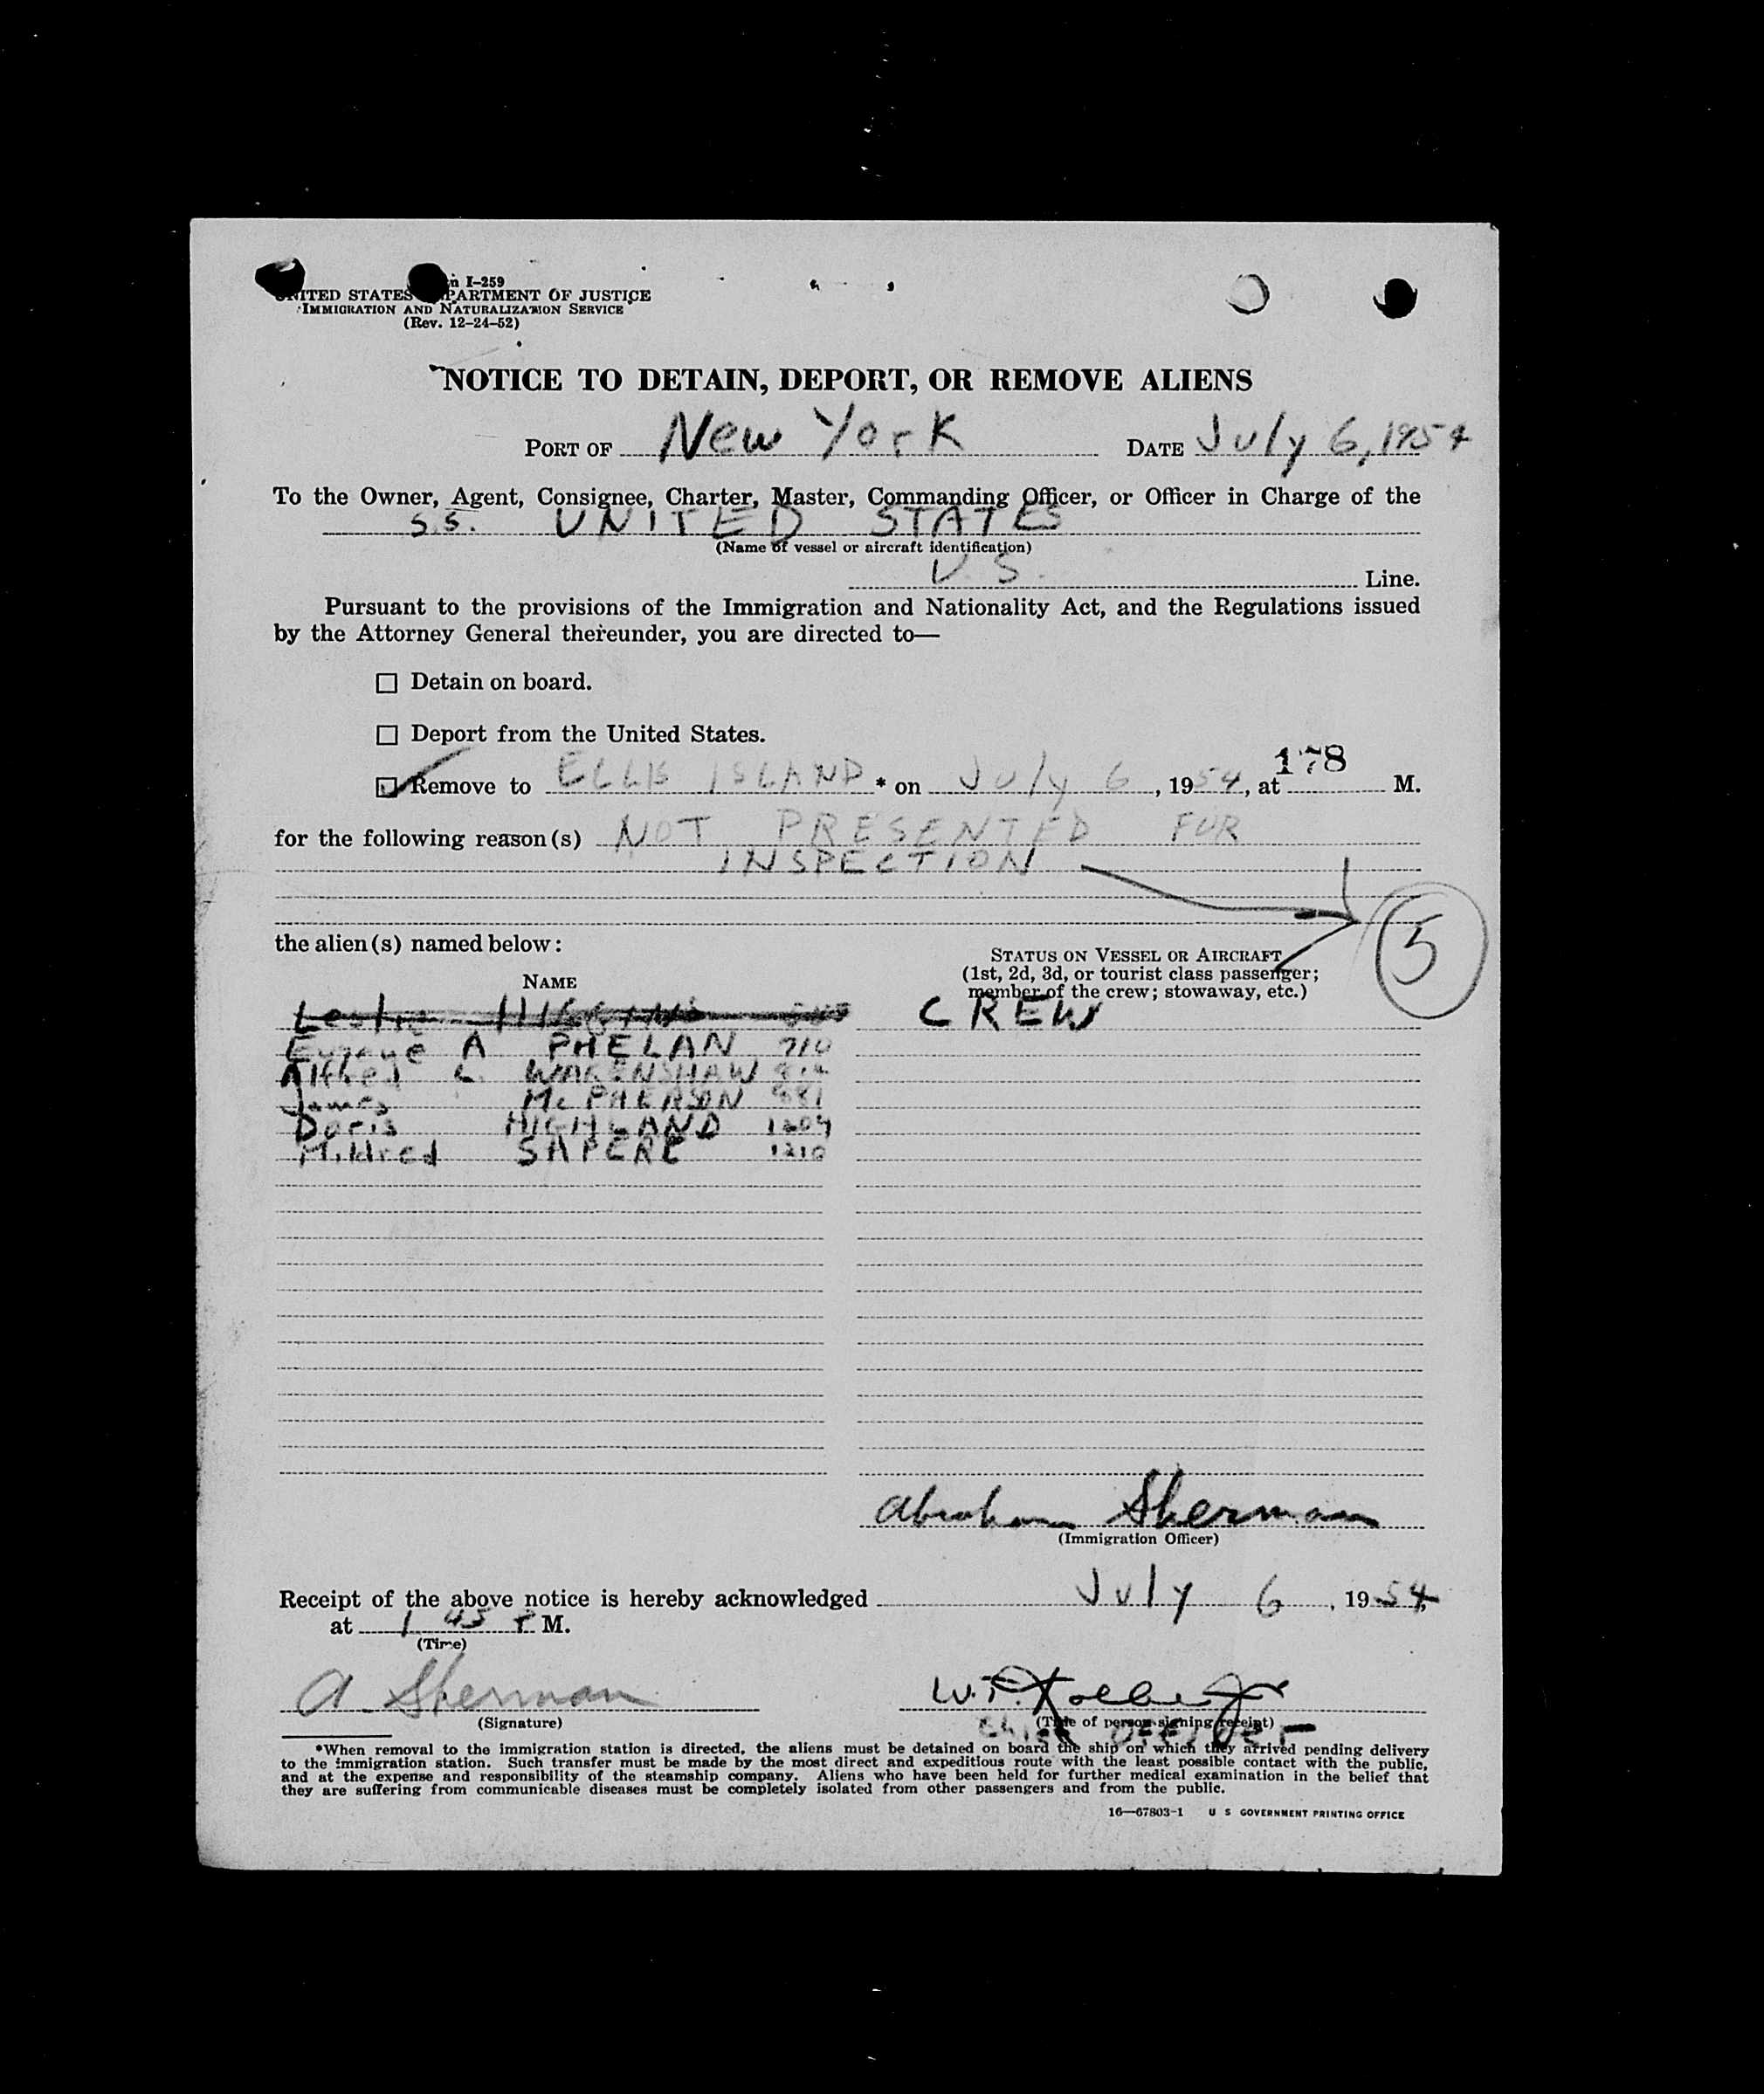 I-259
UNITED STATES DEPARTMENT OF JUSTICE
IMMIGRATION AND NATURALIZATION SERVICE
(Rev. 12-24-52)
NOTICE TO DETAIN, DEPORT, OR REMOVE ALIENS
PORT OF New York DATE July 6, 1954
To the Owner, Agent, Consignee, Charter, Master, Commanding Officer, or Officer in Charge of the
S.S. UNITED STATES
(Name of vessel or aircraft identification)
U.S. Line.
Pursuant to the provisions of the Immigration and Nationality Act, and the Regulations issued
by the Attorney General thereunder, you are directed to—
☐ Detain on board.
☐ Deport from the United States.
178
☑ Remove to ELLIS ISLAND * on July 6, 1954, at M.
for the following reason(s) NOT PRESENTED FOR
INSPECTION
5
the alien(s) named below:
STATUS ON VESSEL OR AIRCRAFT
(1st, 2d, 3d, or tourist class passenger;
member of the crew; stowaway, etc.)
NAME
Leslie HIGGINS CREW
Eugene A PHELAN 710
Alfred L. WARENSHAW
James McPHERSON 881
Doris HIGHLAND 1209
Mildred SAPERE 1210
Abraham Sherman
(Immigration Officer)
Receipt of the above notice is hereby acknowledged July 6, 1954
at 1 45 P M.
(Time)
A. Sherman W.P. Jr
(Signature) (Title of person signing receipt)
CHIEF OFFICER
*When removal to the immigration station is directed, the aliens must be detained on board the ship on which they arrived pending delivery
to the immigration station. Such transfer must be made by the most direct and expeditious route with the least possible contact with the public,
and at the expense and responsibility of the steamship company. Aliens who have been held for further medical examination in the belief that
they are suffering from communicable diseases must be completely isolated from other passengers and from the public.
16—67803-1 U S GOVERNMENT PRINTING OFFICE